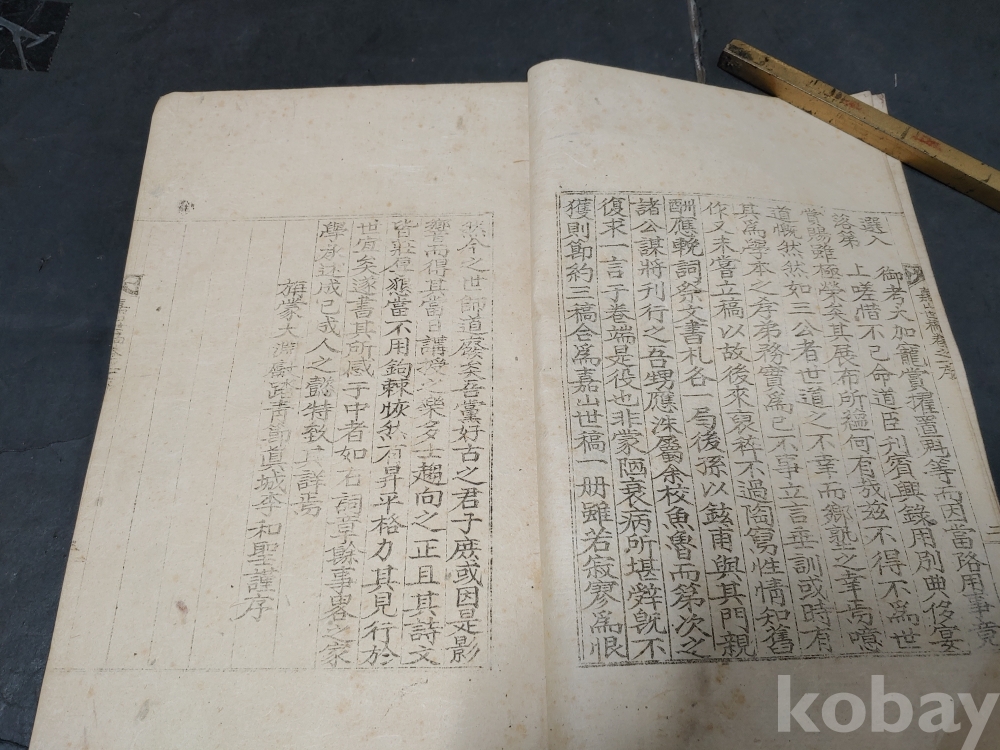 嘉山世稿卷之一 序
二
選入 御考大加寵賞擢置第二等而因當路用事竟
落第 上嗟惜不已命道臣刊賓興錄用別典侈宴
賞賜雖極榮矣其展布所蘊何有哉玆不得不爲世
道慨然然如三公者世道之不幸而鄕塾之幸焉噫
其爲學本之孝弟務實爲己不事立言垂訓或時有
作又未嘗立稿以故後來裒稡不過陶寫性情知舊
酬應輓詞祭文書札各一局後孫以鉉甫與其門親
諸公謀將刊行之吾甥應洙屬余校魚魯而第次之
復求一言于卷端是役也非蒙陋衰病所堪辭旣不
獲則節約三稿合爲嘉山世稿一册雖若寂寥爲恨
然今之世師道廢矣吾黨好古之君子庶或因是影
響而得其當日講授之樂多士趨向之正且其詩文
皆莊重 當不用鉤棘恢然有昇平格力其見行於
世宜矣遂書其所感于中者如右詞章餘事畧之家
學承述成已成人之懿特致其詳焉
旃蒙大淵獻 眞城李和聖謹序